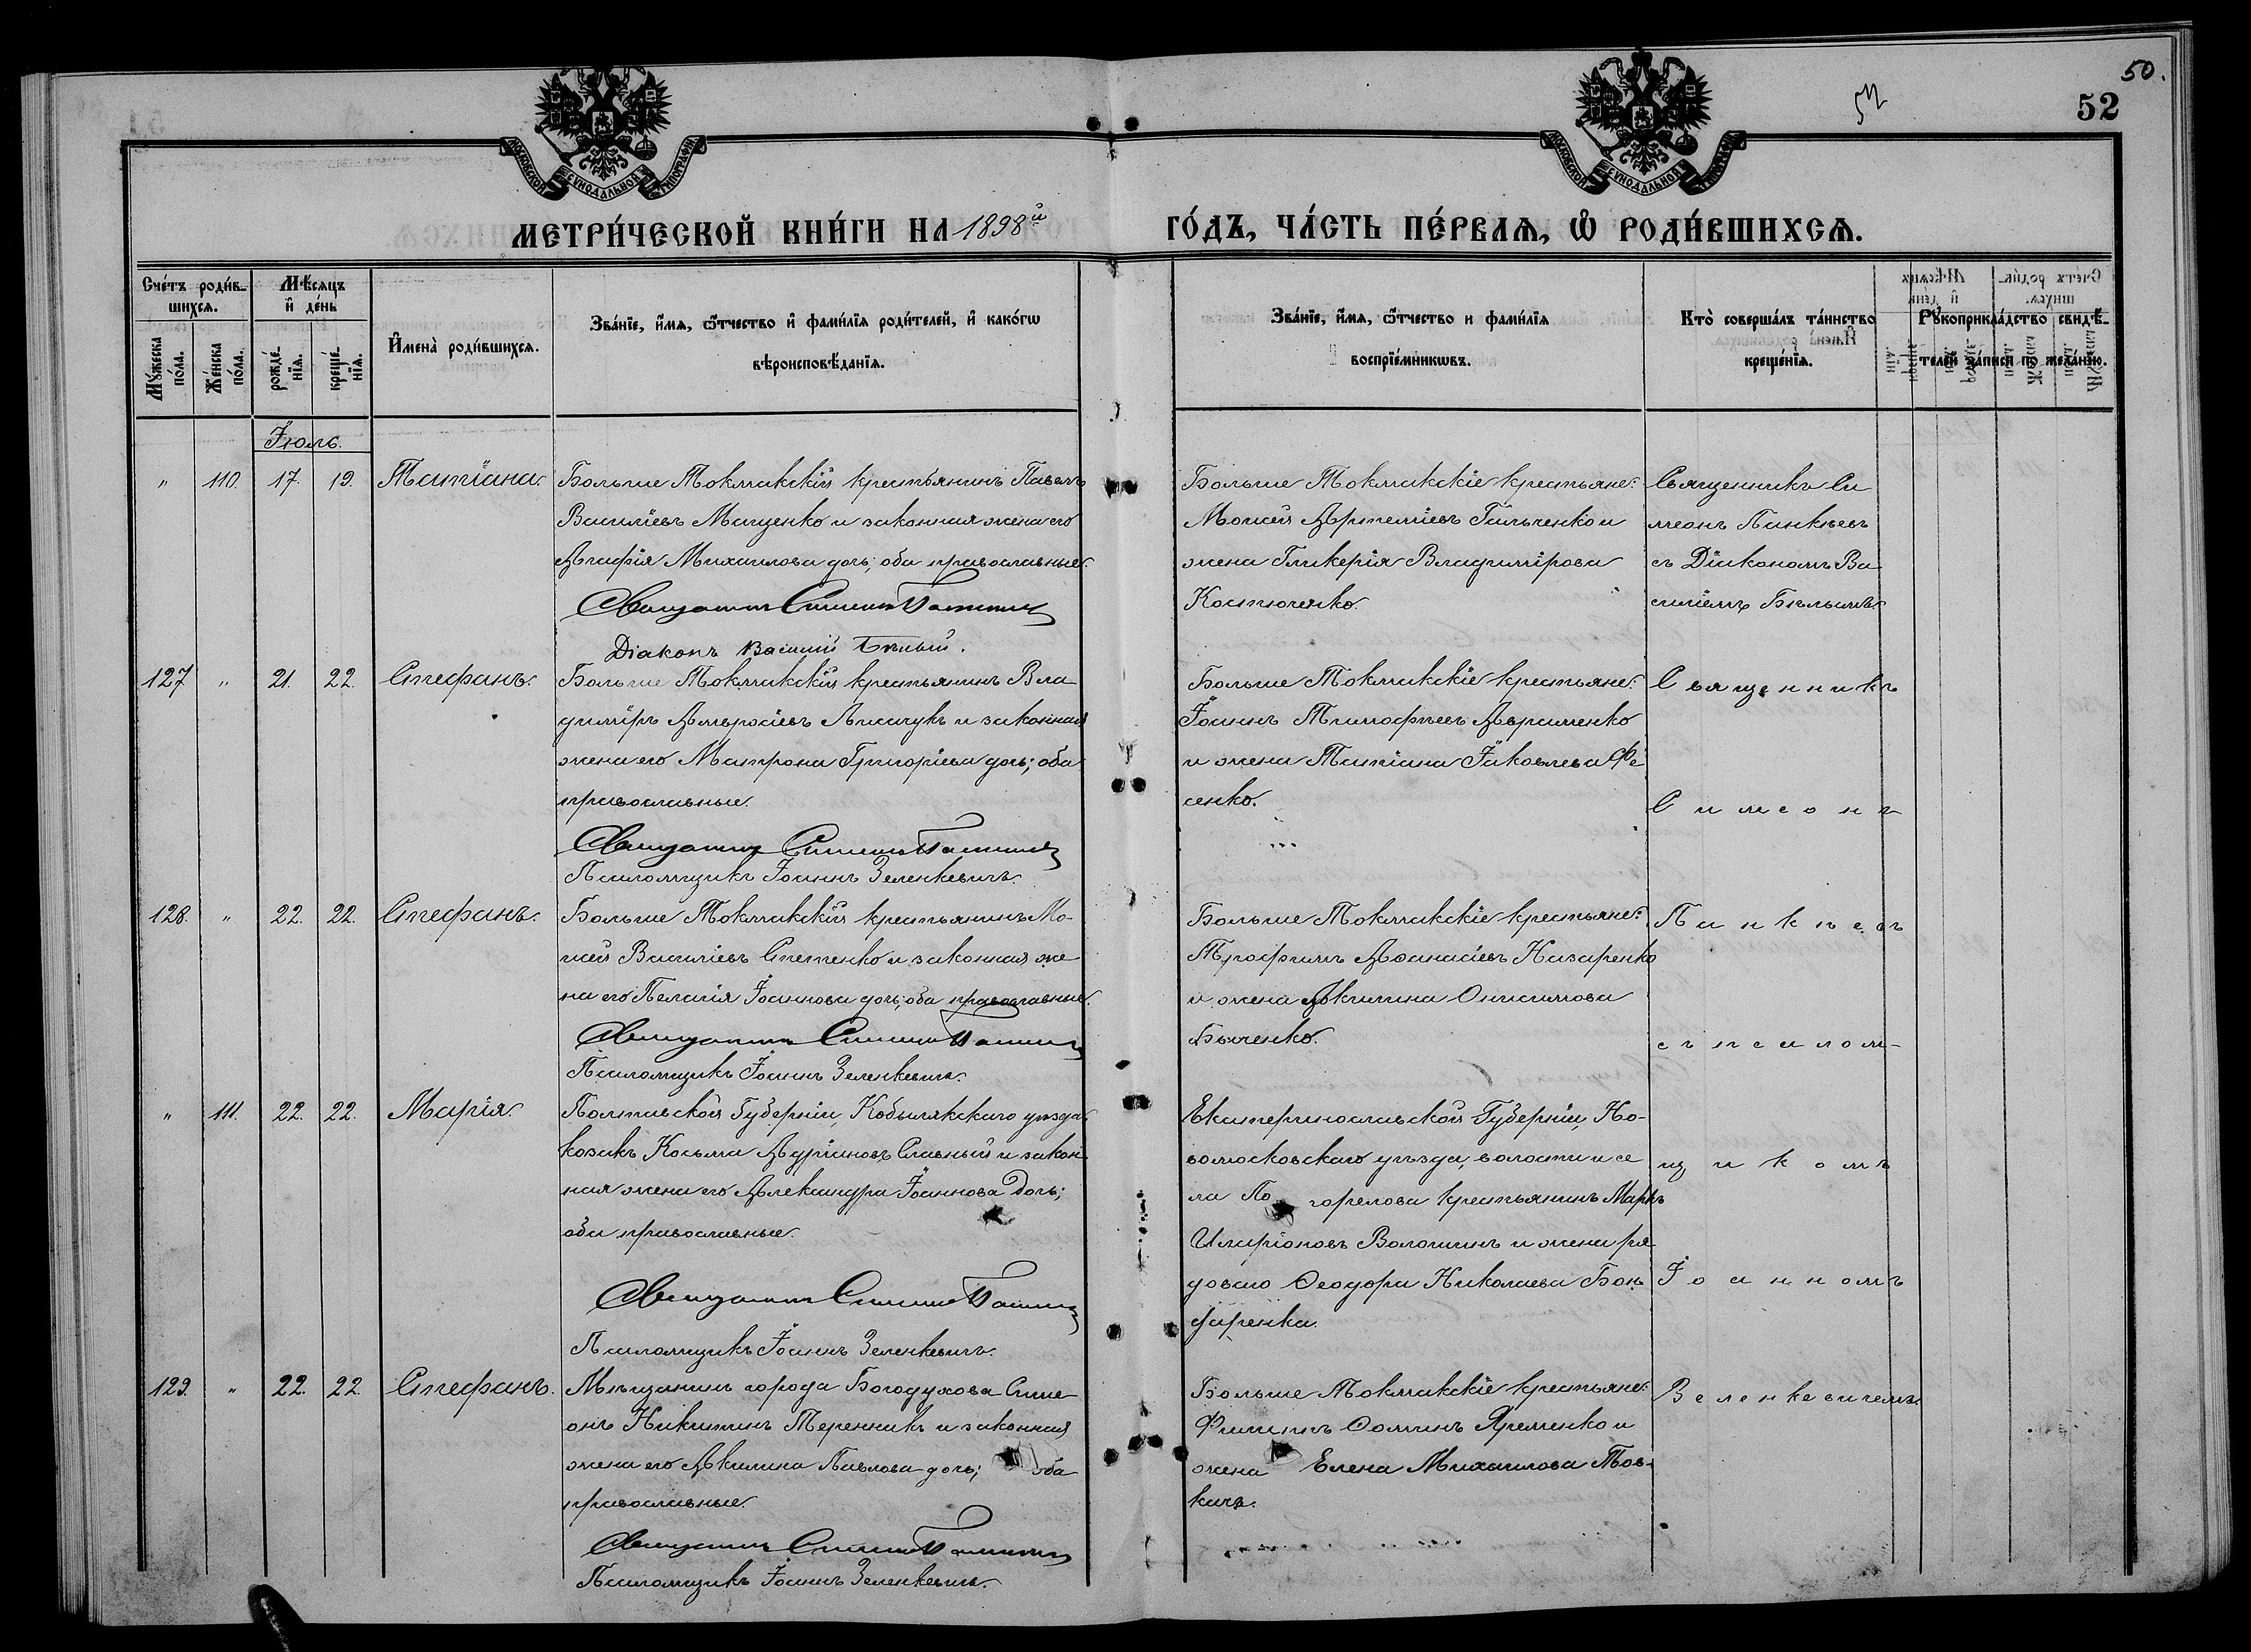 50.
52
МОСКОВСКОЙ СѴНОДАЛЬНОЙ ТИПОГРАФІИ
МОСКОВСКОЙ СѴНОДАЛЬНОЙ ТИПОГРАФІИ
МЕТРИ́ЧЕСКОЙ КНИ́ГИ НА 1898й
ГО́ДЪ, ЧА́СТЬ ПЕ́РВАѦ, Ѡ҆ РОДИ́ВШИХСѦ.
Сче́тъ роди́в-
шихсѧ.
Мѣ́сѧцъ
и҆ де́нь
Мꙋ́жеска по́ла.
Же́нска по́ла.
рожде́-нїѧ.
креще́-нїѧ.
И҆мена̀ роди́вшихсѧ.
Зва́нїе, и҆́мѧ, ѻ҆́тчество и҆ фами́лїѧ роди́телей, и҆ како́гѡ
вѣроисповѣ́данїѧ.
Зва́нїе, и҆́мѧ, ѻ҆́тчество и фами́лїѧ
воспрїе́мникѡвъ.
Кто̀ соверша́лъ та́инство
креще́нїѧ.
Рꙋкоприкла́дство свидѣ́-
телей за́писи по жела́нїю.
Іюль.
" 110. 17. 19. Татіана. Больше Токмакскій крестьянинъ Павелъ
Василіевъ Маценко и законная жена его
Агафія Михаилова дочь; оба православные.
Священникъ Симеонъ Панкѣевъ
Діаконъ Василій Бѣлый.
Больше Токмакскіе крестьяне:
Моисей Артеміевъ Гильченко и
жена Гликерія Владимірова
Костюченко.
Священникъ Си
меонъ Панкѣевъ
съ Діакономъ Ва
силіемъ Бѣлымъ.
127 " 21. 22. Стефанъ. Больше Токмакскій крестьянинъ Вла
диміръ Амвросіевъ Лисачукъ и законная
жена его Матрона Григоріева дочь; оба
православные.
Священникъ Симеонъ Панкѣевъ
Псаломщикъ Іоаннъ Зеленкевичъ.
Больше Токмакскіе крестьяне:
Іоаннъ Тимофеевъ Авраменко
и жена Татіана Іаковлева Фе
сенко.
Священникъ
Симеонъ
128. " 22. 22. Стефанъ. Больше Токмакскій крестьянинъ Мо-
исей Василіевъ Степенко и законная же
на его Пелагія Іоаннова дочь; оба православные.
Священникъ Симеонъ Панкѣевъ
Псаломщикъ Іоаннъ Зеленкевичъ.
Больше Токмакскіе крестьяне:
Трофимъ Афанасіевъ Назаренко
и жена Акилина Онисимова
Бычченко.
Панкѣевъ
съ псалом-
" 111. 22. 22. Марія. Полтавской Губерніи, Кобылякскаго уѣзда
козакъ Косьма Адріановъ Славный и закон
ная жена его Александра Іоаннова дочь;
оба православные.
Священникъ Симеонъ Панкѣевъ
Псаломщикъ Іоаннъ Зеленкевичъ.
Екатеринославской Губерніи, Но-
вомосковскаго уѣзда, волости и се
ла По горелова крестьянинъ Маркъ
Иларіоновъ Волошинъ и жена ря
доваго Ѳеодора Николаева Бон
даренка.
щикомъ
Іоанномъ
129. " 22. 22. Стефанъ. Мѣщанинъ города Богодухова Симе
онъ Никитинъ Теренникъ и законная
жена его Акилина Павлова дочь; оба
православные.
Священникъ Симеонъ Панкѣевъ
Псаломщикъ Іоаннъ Зеленкевичъ.
Больше Токмакскіе крестьяне:
Филиппъ Ѳоминъ Яременко и
жена Елена Михаилова Тов-
качъ.
Зеленкевичемъ.